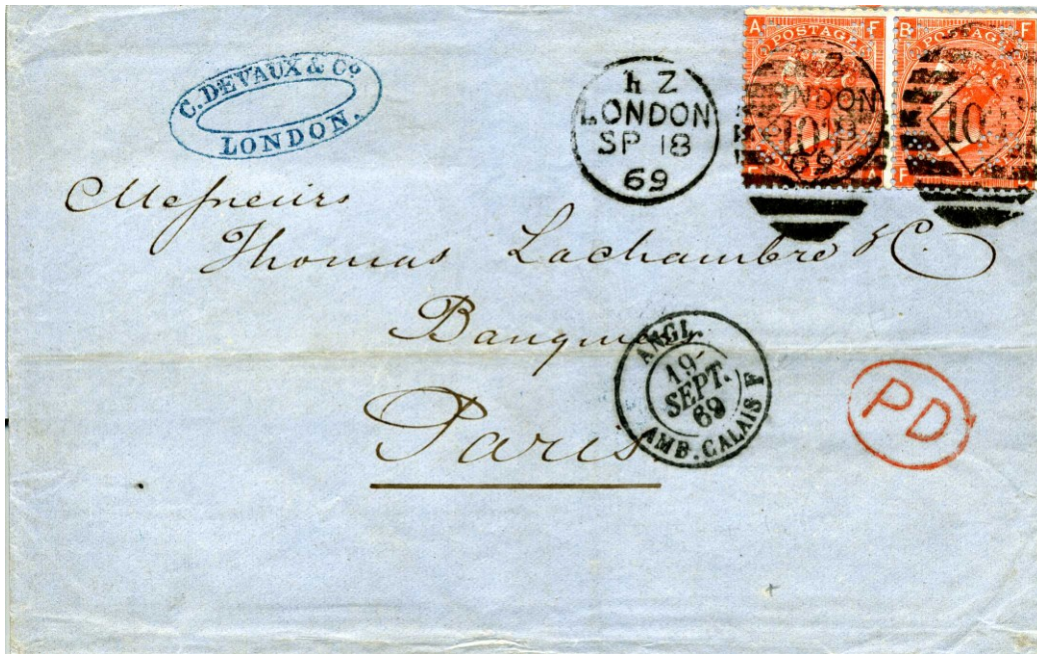 C. DEVAUX & Co
LONDON.
h Z
LONDON
SP 18
69
A F
POSTAGE
LONDON
69
F A
B F
POSTAGE
F B
Messieurs
Thomas Lachambre & C.
Banquiers
Paris
ANGL.
19
SEPT.
69
AMB. CALAIS F
PD